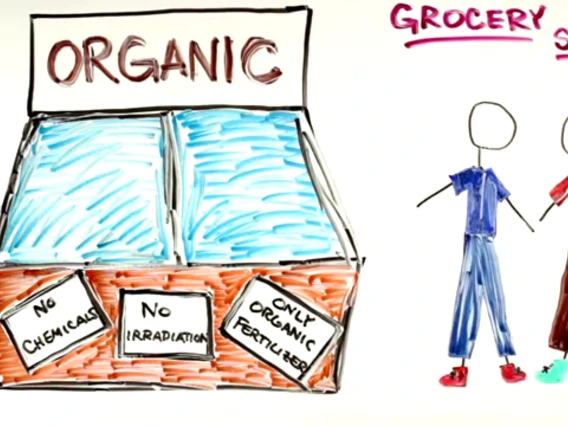 ORGANIC
GROCERY
S
NO
CHEMICALS
No
IRRADIATION
ONLY
ORGANIC
FERTILIZER